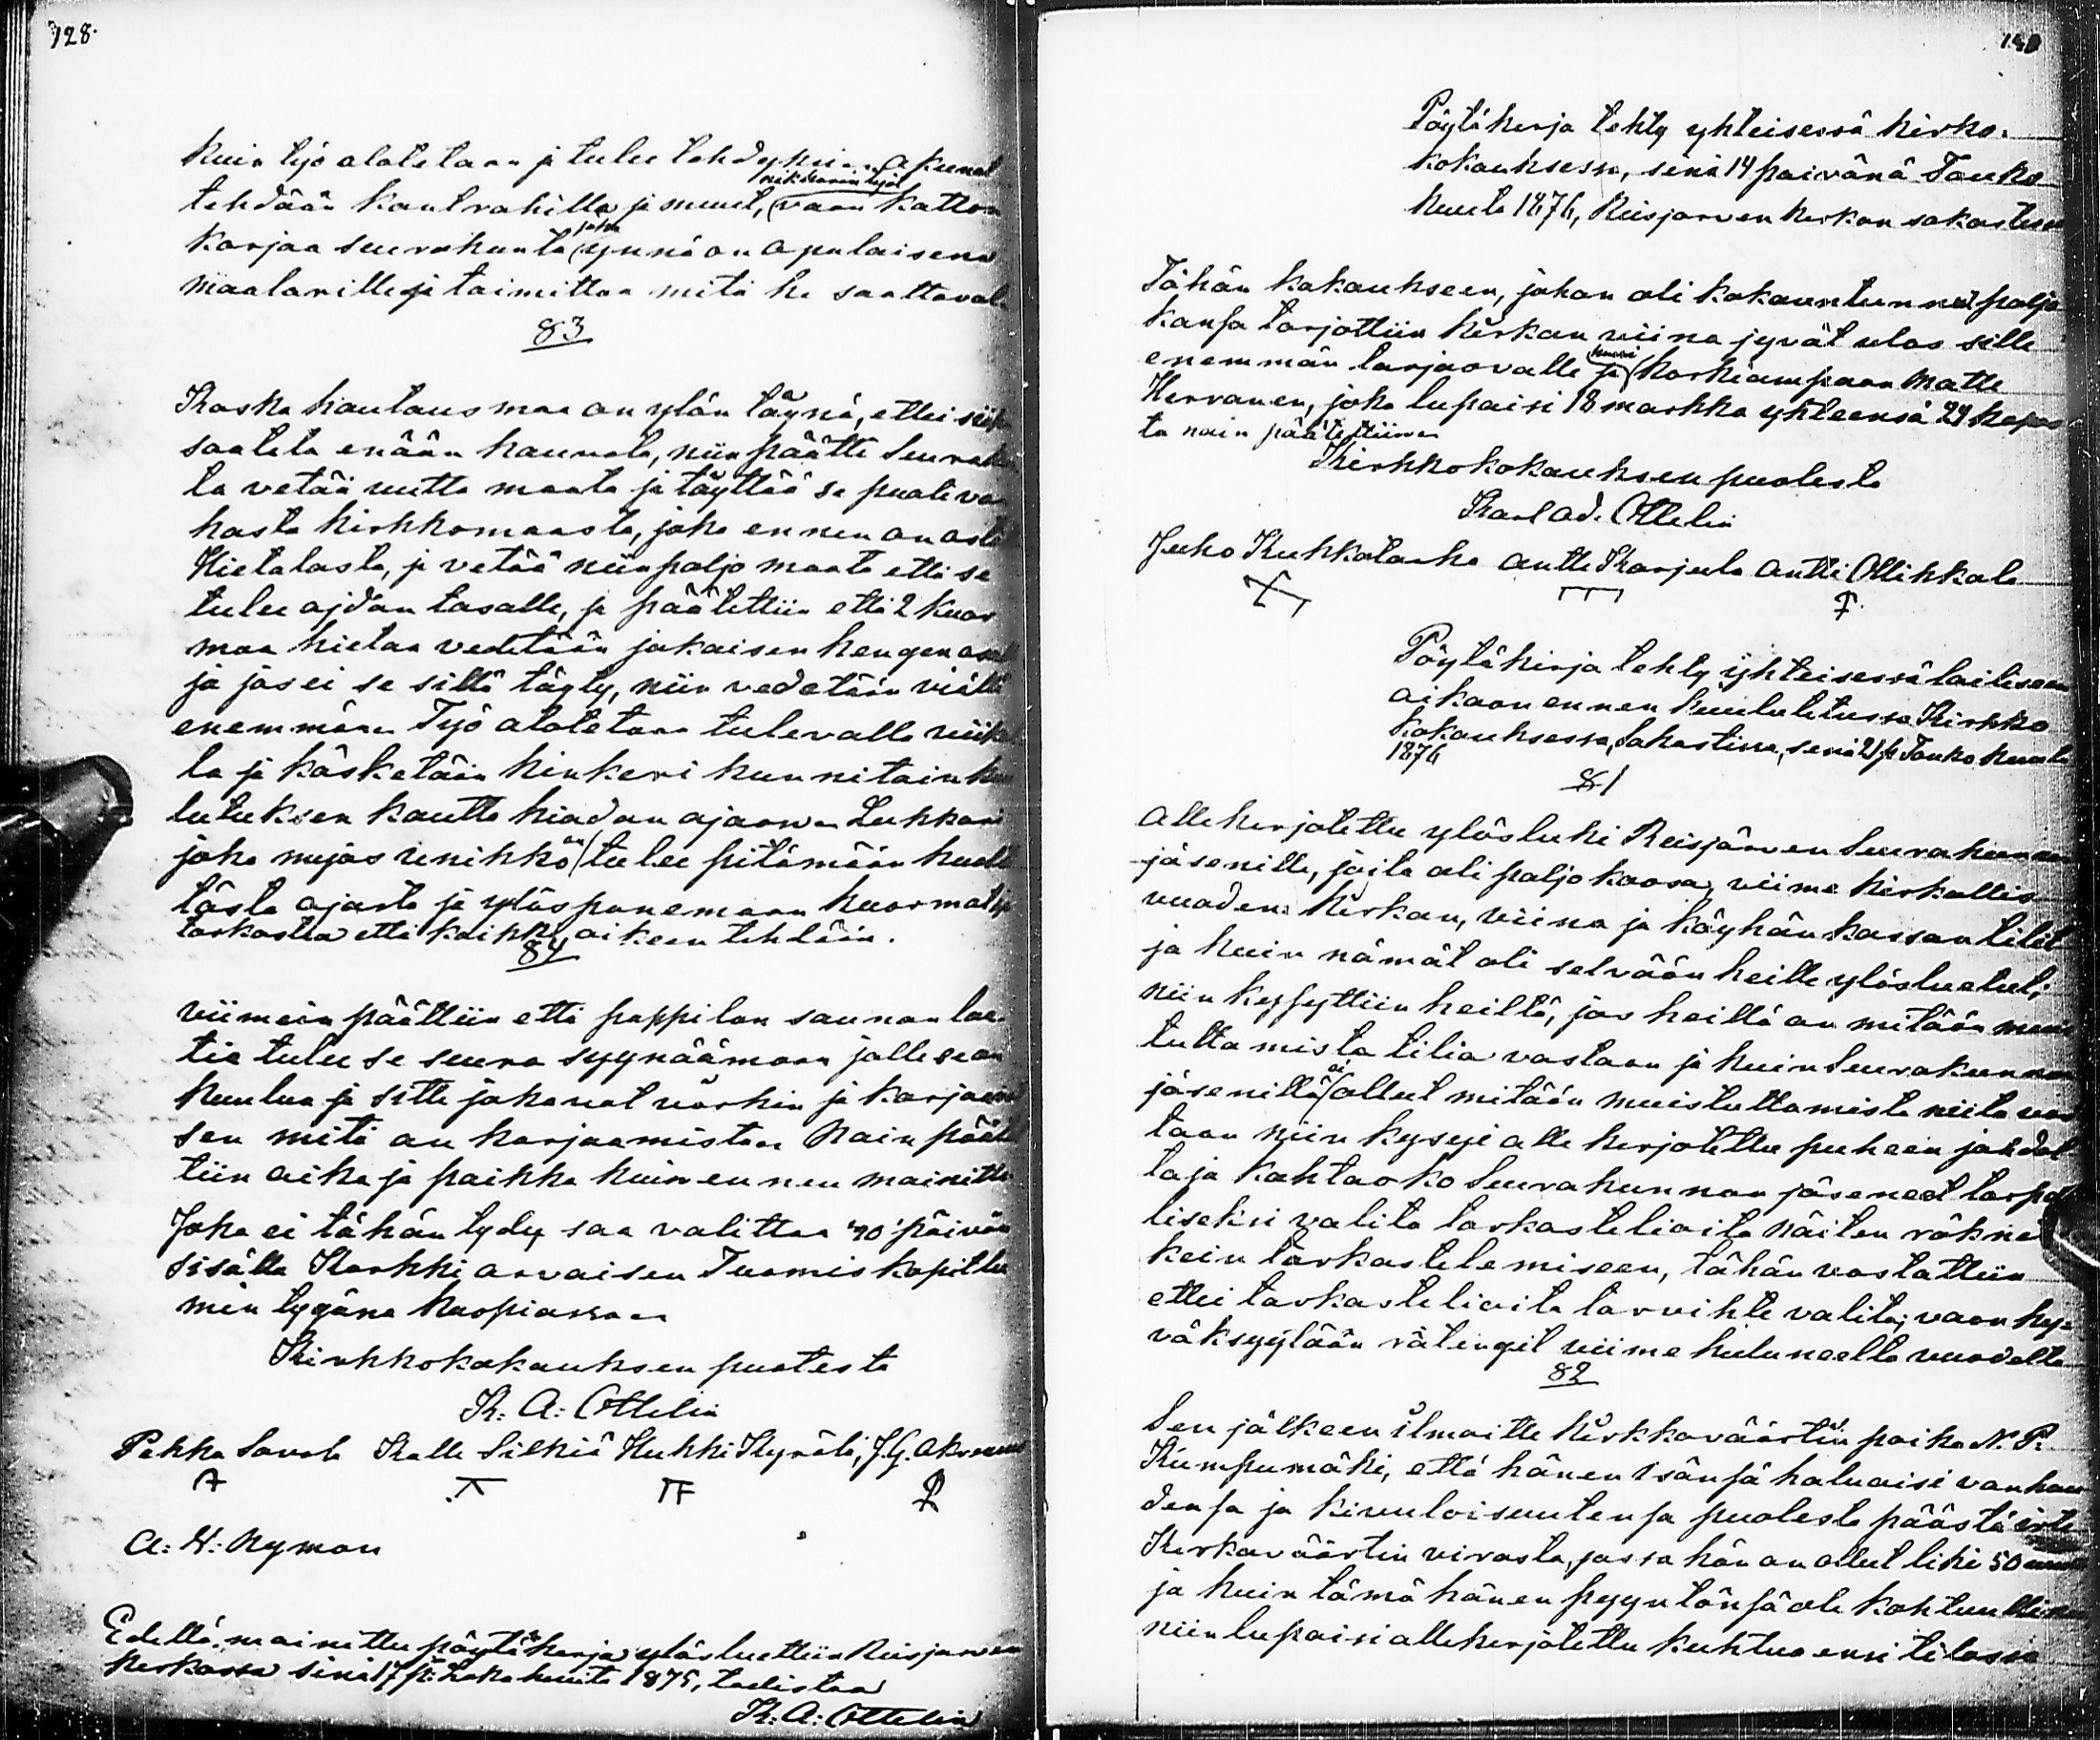 128.
kuin työ alotetaan ja tulee tehdyksi. akunat
tehdään kontrahilla ja muut, nikkarin työt vaan katton
korjaa seurakunta joka ynnä on apulaisena
määlarille ja taimittaa mitä he saattaval
§3
Koska hautausmaa on ylön täynä, ettei siihen
saateta enään hauvata, niin päätti Seurakun
ta vetää uutta maata ja täyttää se puoli van
hasta kirkkomaasta, joka ennen on ostet
Hietalasta, ja vetää niin paljo maata että se
tulee ajdan tasalle, ja päätettiin että 2 kuor
maa hietaa vedetään jokaisen hengen osalle
ja jos ei se sillä täyty, niin vedetään viälä
enemmän. Työ alotetaan tulevalla viikol
la ja käsketään kinkeri kunnitain kuu
lutuksen kautta hiadan ajaan. Lukkari
joka myös unikkö on tulee pitämään huolta
tästä ajasta ja ylöspanemaan kuormat ja
tarkastaa että kaikki aikeen tehdään.
§4
viimein päättiin että pappilan saunan laa-
tia tulee se seura syynäämään jolle se on
kuulua ja sitte jakavat värkin ja korjaavat
sen mitä on korjaamista. Näin päätet
tiin aika ja paikka kuin ennen mainittu.
Joka ei tähän tydy, saa valittaa 30 päivän
sisällä Korkkiarvaisen Tuomiokapitlu
min tygöna Kuopiossa.
Kirkkokokouksen puolesta
K: A: Ottelin
Pekka Savola Kalle Silkiä Heikki Kyrölä, J. G. Akrenius
A: H: Nyman
Edellä mainittu pöytäkirja ylösluettiin Reisjarven
kirkossa sinä 17 p: Lokakuuta 1875, todistaa
K: A: Ottelin
Pöytäkirja tehty yhteisessä kirko-
kokouksessa, senä 14 paivänä Touko
kuuta 1876, Reisjarven kirkon sakastissa
Tähän kokoukseen, johon oli kokountunnut paljo
kansa tarjottiin kirkon viina jyvät ulos sille
enemmän tarjoovalle ja huusi korkiampaan Matte
Hervanen, joka lupaisi 18 markka yhteensä 24 kapas
ta näin päätettiin.
Kirkkokokouksen puolesta
Karl Ad. Ottelin
Juho Kukkotarha Antti Karjula Antti Ollikkala
Pöytäkirja tehty yhteisessä lailiseen
aikaan ennen kuulutetussa Kirkko
kokouksessa, Sakastissa, senä 21 p: Touko kuuta
1876
§1
Allekirjotettu ylösluki Reisjärven Seurakunnan
jäsenille, joita oli paljo koossa, viime kirkollis
vuoden kirkon, viina ja köyhän kassan tilit
ja kuin nämät oli selvään heille ylösluetut,
niin kysyttiin heiltä, jos heillä on mitään muis
tuttamista tiliä vastaan ja kuin Seurakunnan
jäsenillä ei ollut mitään muistuttamista niitä vas
taan niin kysyi alle kirjotettu puheen johdat
taja kahtaoko Seurakunnan jäsenet tarpel
liseksi valita tarkasteliaita näiten räkne
kein tarkastelemiseen, tähän vastattiin
ettei tarkasteliaita tarvihte valita, vaan hy-
väksyytään räkingit viime kuluneelta vuodelta
§2
Sen jälkeen ilmoitte kirkkoväärtin poika N. P.
Kumpumäki, että hänen isänsä haluaisi vanhuu
densa ja kivuloisuutensa puolesta päästä irti
Kirkoväärtin virasta, jossa hän on ollut liki 50
ja kuin tämä hänen pyyntönsä ole kohtuullinen
niin lupaisi allekirjotettu kuhtua ensi tilassa